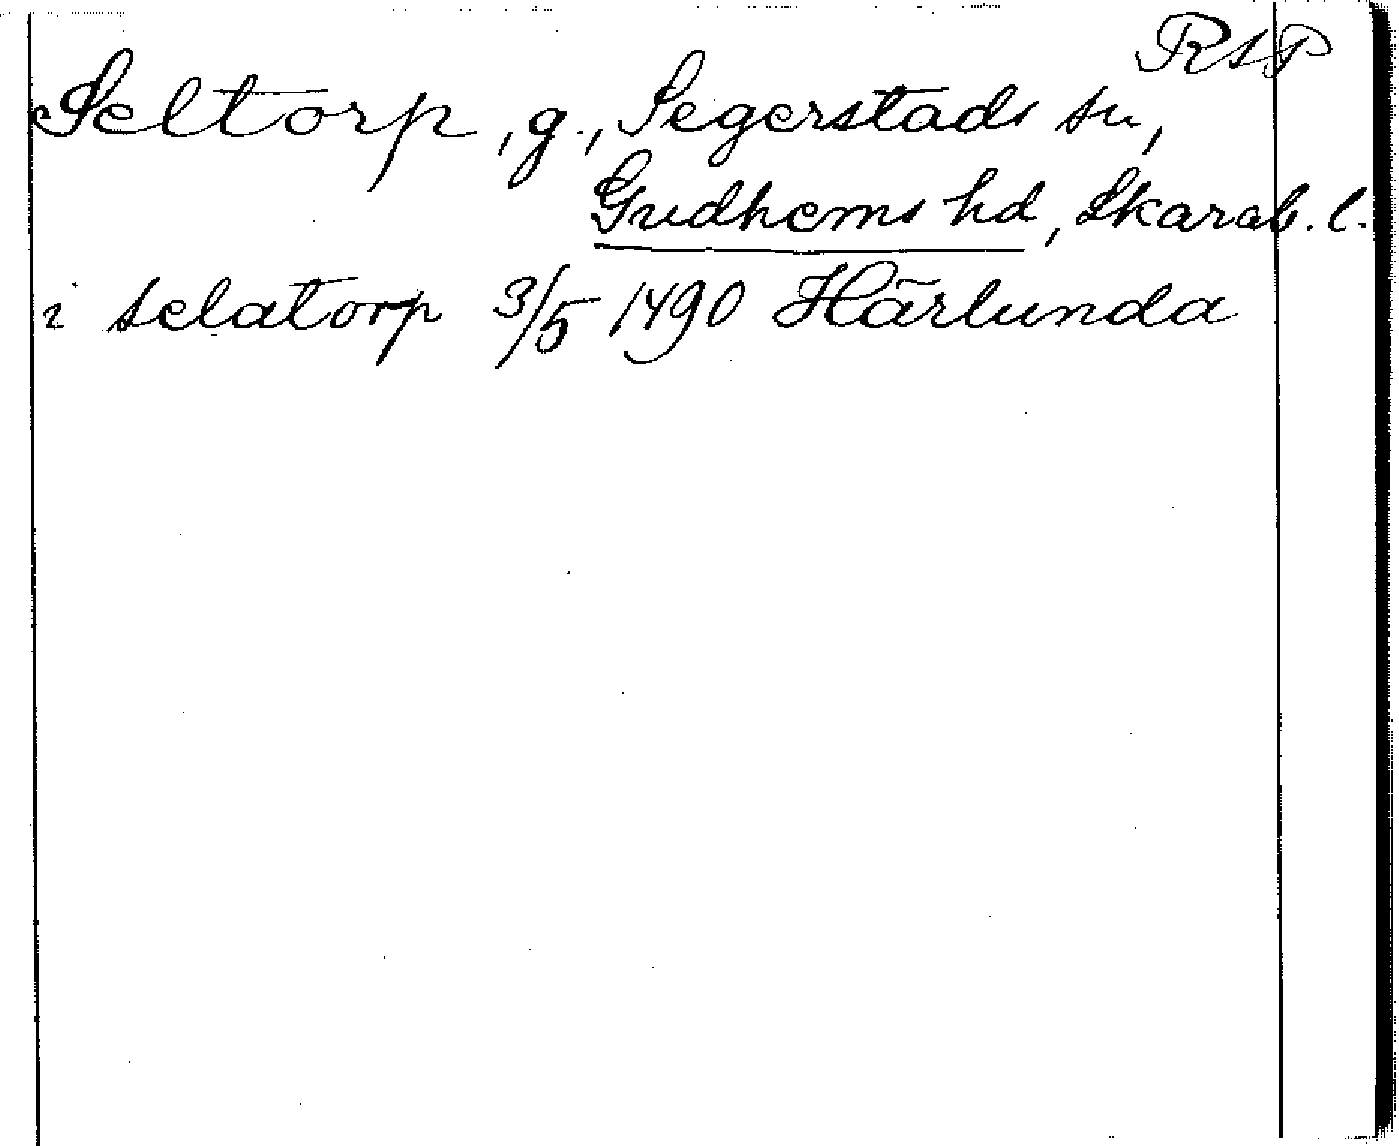 RAP
Seltorp, g., Segerstads sn,
Gudhems hd, Skarab. l.
i selatorp 3/5 1490 Härlunda